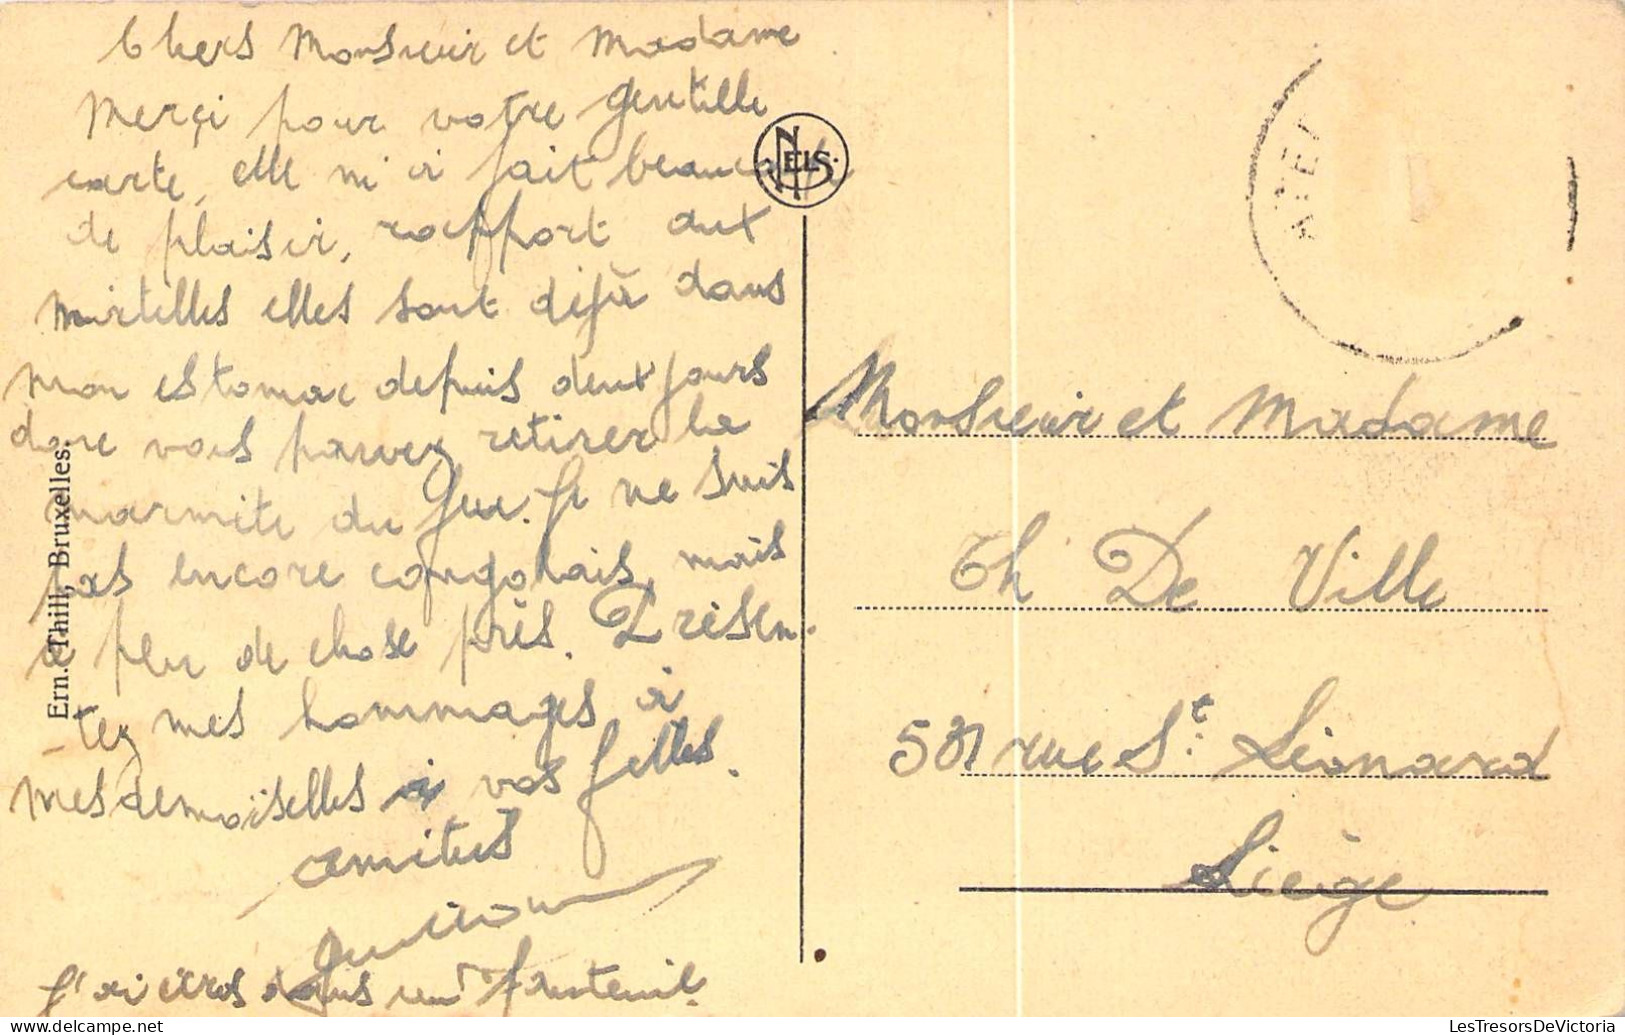 Chers Monsieur et Madame
Merçi pour votre gentille
carte, elle m'a fait beaucoup
de plaisir, rapport aux
mirtilles elles sont déjà dans
mon estomac depuis deux jours
donc vous pouvez retirer la
marmite du feu. Je ne suis
pas encore congolais, mais
a peu de chose près. Présen-
tez mes hommages à
mesdemoïselles à vos filles.
amitiés
J'ai écris dans un fauteuil.
NELS
Ern. Thill, Bruxelles.
Monsieur et Madame
Th De Ville
531 rue St Léonard
Liège
LesTresorsDeVictoria